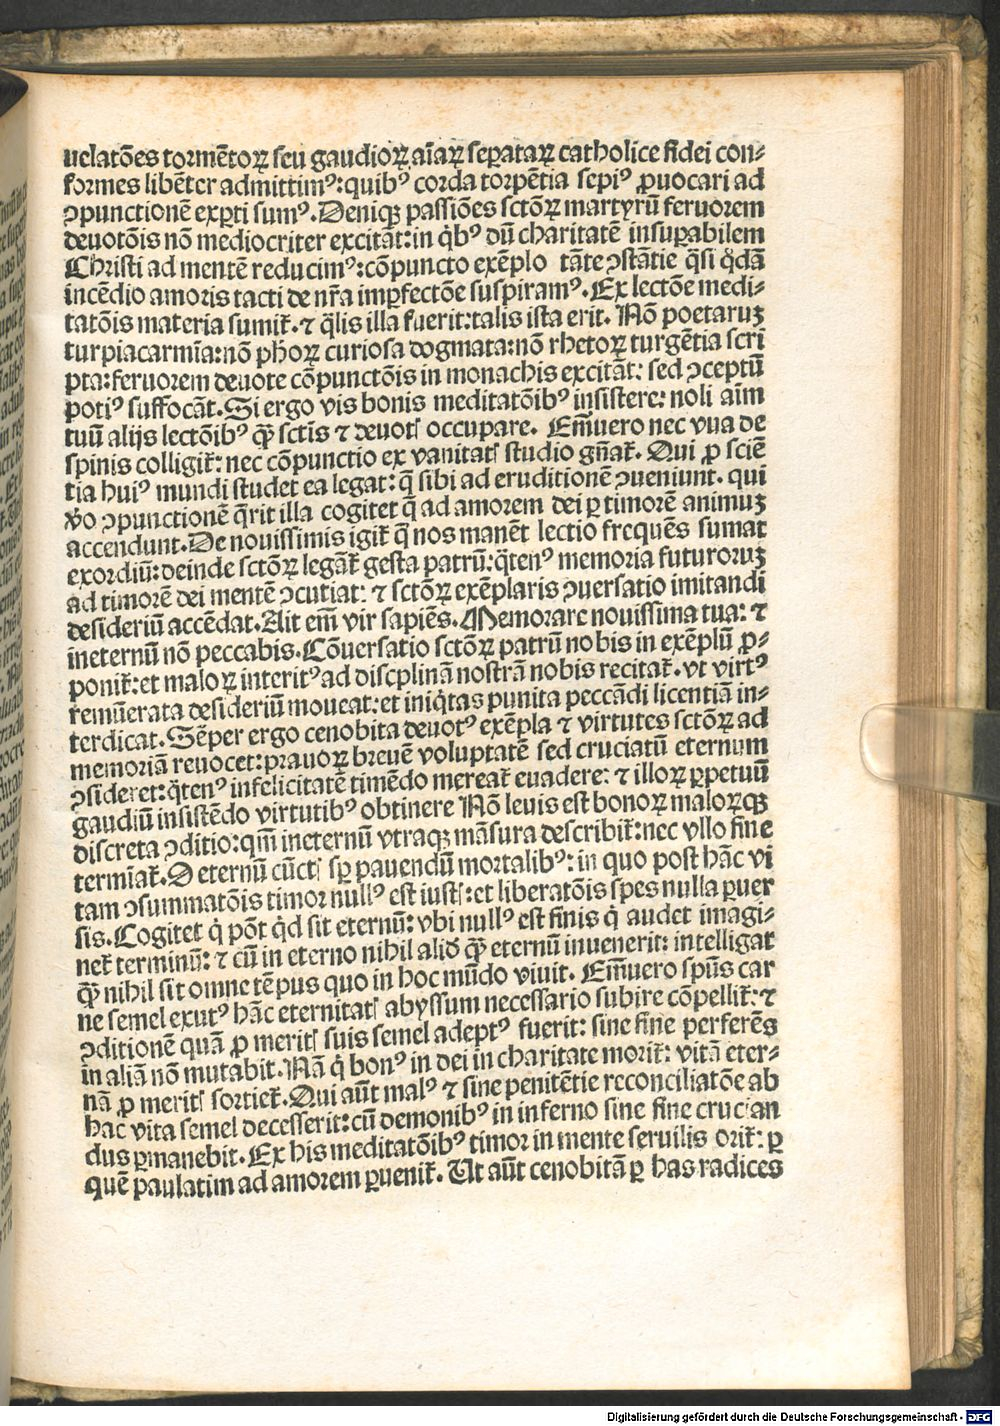 uelatōes tormētoꝝ seu gaudioꝝ aīaꝝ seꝑataꝝ catholice fidei con-
formes libēter admittimꝰ: quibꝰ corda torpētia sepiꝰ ꝓuocari ad
ꝯpunctionē exꝑti sumꝰ. Deniqꝫ passiōes sctōꝝ martyrū feruorem
deuotōis nō mediocriter excitāt: in q̇bꝰ dū charitatē insuꝑabilem
Christi ad mentē reducimꝰ: cōpuncto exēplo tāte ꝯstātie q̄si q̇dā
incēdio amoris tacti de nr̄a imꝑfectōe suspiramꝰ. Ex lectōe medi-
tatōis materia sumit̄. ⁊ q̄lis illa fuerit: talis ista erit. Nō poetaruꝫ
turpiacarmīa: nō pħoꝝ curiosa dogmata: nō rhetoꝝ turgētia scri
pta: feruorem deuote cōpunctōis in monachis excitāt: sed ꝯceptū
potiꝰ suffocāt. Si ergo vis bonis meditatōibꝰ insistere: noli aīm
tuū alijs lectōibꝰ q̄ꝫ sctīs ⁊ deuotꝭ occupare. Em̄uero nec vua de
spinis colligit̄: nec cōpunctio ex vanitatꝭ studio gn̄at̄. Qui ꝓ sciē
tia huiꝰ mundi studet ea legat: q̄ sibi ad eruditionē ꝯueniunt. qui
v̄o ꝯpunctionē q̄rit illa cogitet q̄ ad amorem dei ꝑ timorē animuꝫ
accendunt. De nouissimis igit̄ q̄ nos manēt lectio frequēs sumat
exordiū: deinde sctōꝝ legāt̄ gesta patrū: q̄tenꝰ memoria futuroruꝫ
ad timorē dei mentē ꝯcutiat: ⁊ sctōꝝ exēplaris ꝯuersatio imitandi
desideriū accēdat. Ait em̄ vir sapiēs. Memorare nouissima tua: ⁊
ineternū nō peccabis. Cōuersatio sctōꝝ patrū nobis in exēplū ꝓ-
ponit̄: et maloꝝ interitꝰ ad discplinā nostrā nobis recitat̄. vt virtꝰ
remūerata desideriū moueat: et iniq̇tas punita peccādi licentiā in-
terdicat. Sēper ergo cenobita deuotꝰ exēpla ⁊ virtutes sctōꝝ ad
memoriā reuocet: prauoꝝ breuē voluptatē sed cruciatū eternum
ꝯsideret: q̄tenꝰ infelicitatē timēdo mereat̄ euadere: ⁊ illoꝝ ꝑpetuū
gaudiū insistēdo virtutibꝰ obtinere Nō leuis est bonoꝝ maloꝝqꝫ
discreta ꝯditio: qm̄ ineternū vtraqꝫ māsura describit̄: nec vllo fine
termīat̄. O eternū cūctꝭ sꝑ pauendū mortalibꝰ: in quo post hāc vi
tam ꝯsummatōis timor nullꝰ est iustꝭ: et liberatōis spes nulla ꝑuer
sis. Cogitet q̇ pōt q̇d sit eternū: vbi nullꝰ est finis q̇ audet imagi-
net̄ terminū: ⁊ cū in eterno nihil aliđ q̄ꝫ eternū inuenerit: intelligat
q̄ꝫ nihil sit omne tēpus quo in hoc mūdo viuit. Em̄uero spūs car
ne semel exutꝰ hāc eternitatꝭ abyssum necessario subire cōpellit̄: ⁊
ꝯditionē quā ꝓ meritꝭ suis semel adeptꝰ fuerit: sine fine perferēs
in aliā nō mutabit. Nā q̇ bonꝰ in dei in charitate morit̄: vitā eter-
nā ꝓ meritꝭ sortiet̄. Qui aūt malꝰ ⁊ sine penitētie reconciliatōe ab
hac vita semel decesserit: cū demonibꝰ in inferno sine fine crucian
dus ꝑmanebit. Ex his meditatōibꝰ timor in mente seruilis orit̄: ꝑ
quē paulatim ad amorem ꝑuenit̄. Ut aūt cenobitā ꝑ has radices
Digitalisierung gefördert durch die Deutsche Forschungsgemeinschaft - DFG